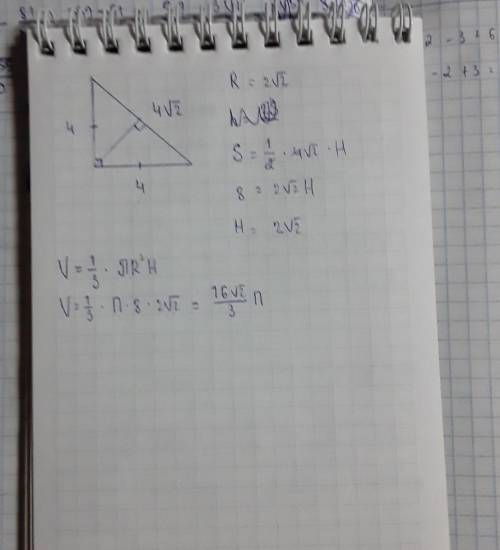 4
4√2
4
R = 2√2
S = 1/2 · 4√2 · H
8 = 2√2 H
H = 2√2
V = 1/3 · ПR²H
V = 1/3 · П · 8 · 2√2 = 16√2/3 П
2 - 3 = 6
- 2 + 3 =